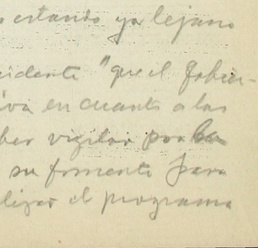 estando ya lejano
cidente "que el Gobier-
iva en cuanto a las
ber vigilar por la
su fomento para
lizar el programa